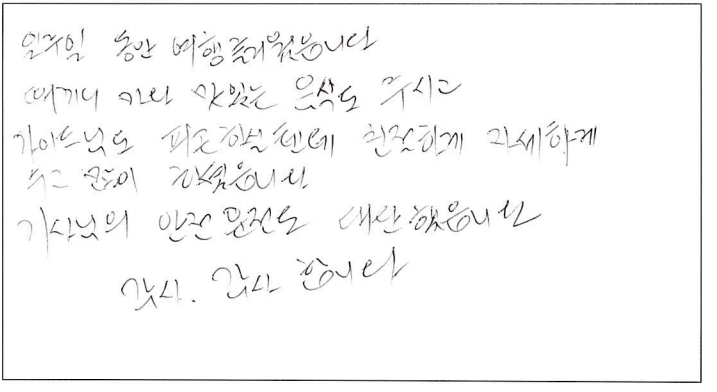 일주일 동안 여행 즐거웠습니다
마다 맛있는 음식도 주시고
가이드님도 피곤하실텐데 친절하게 자세하게
많이 하셨습니다
기사님의 안전 운전도 대단했습니다
감사. 감사 합니다